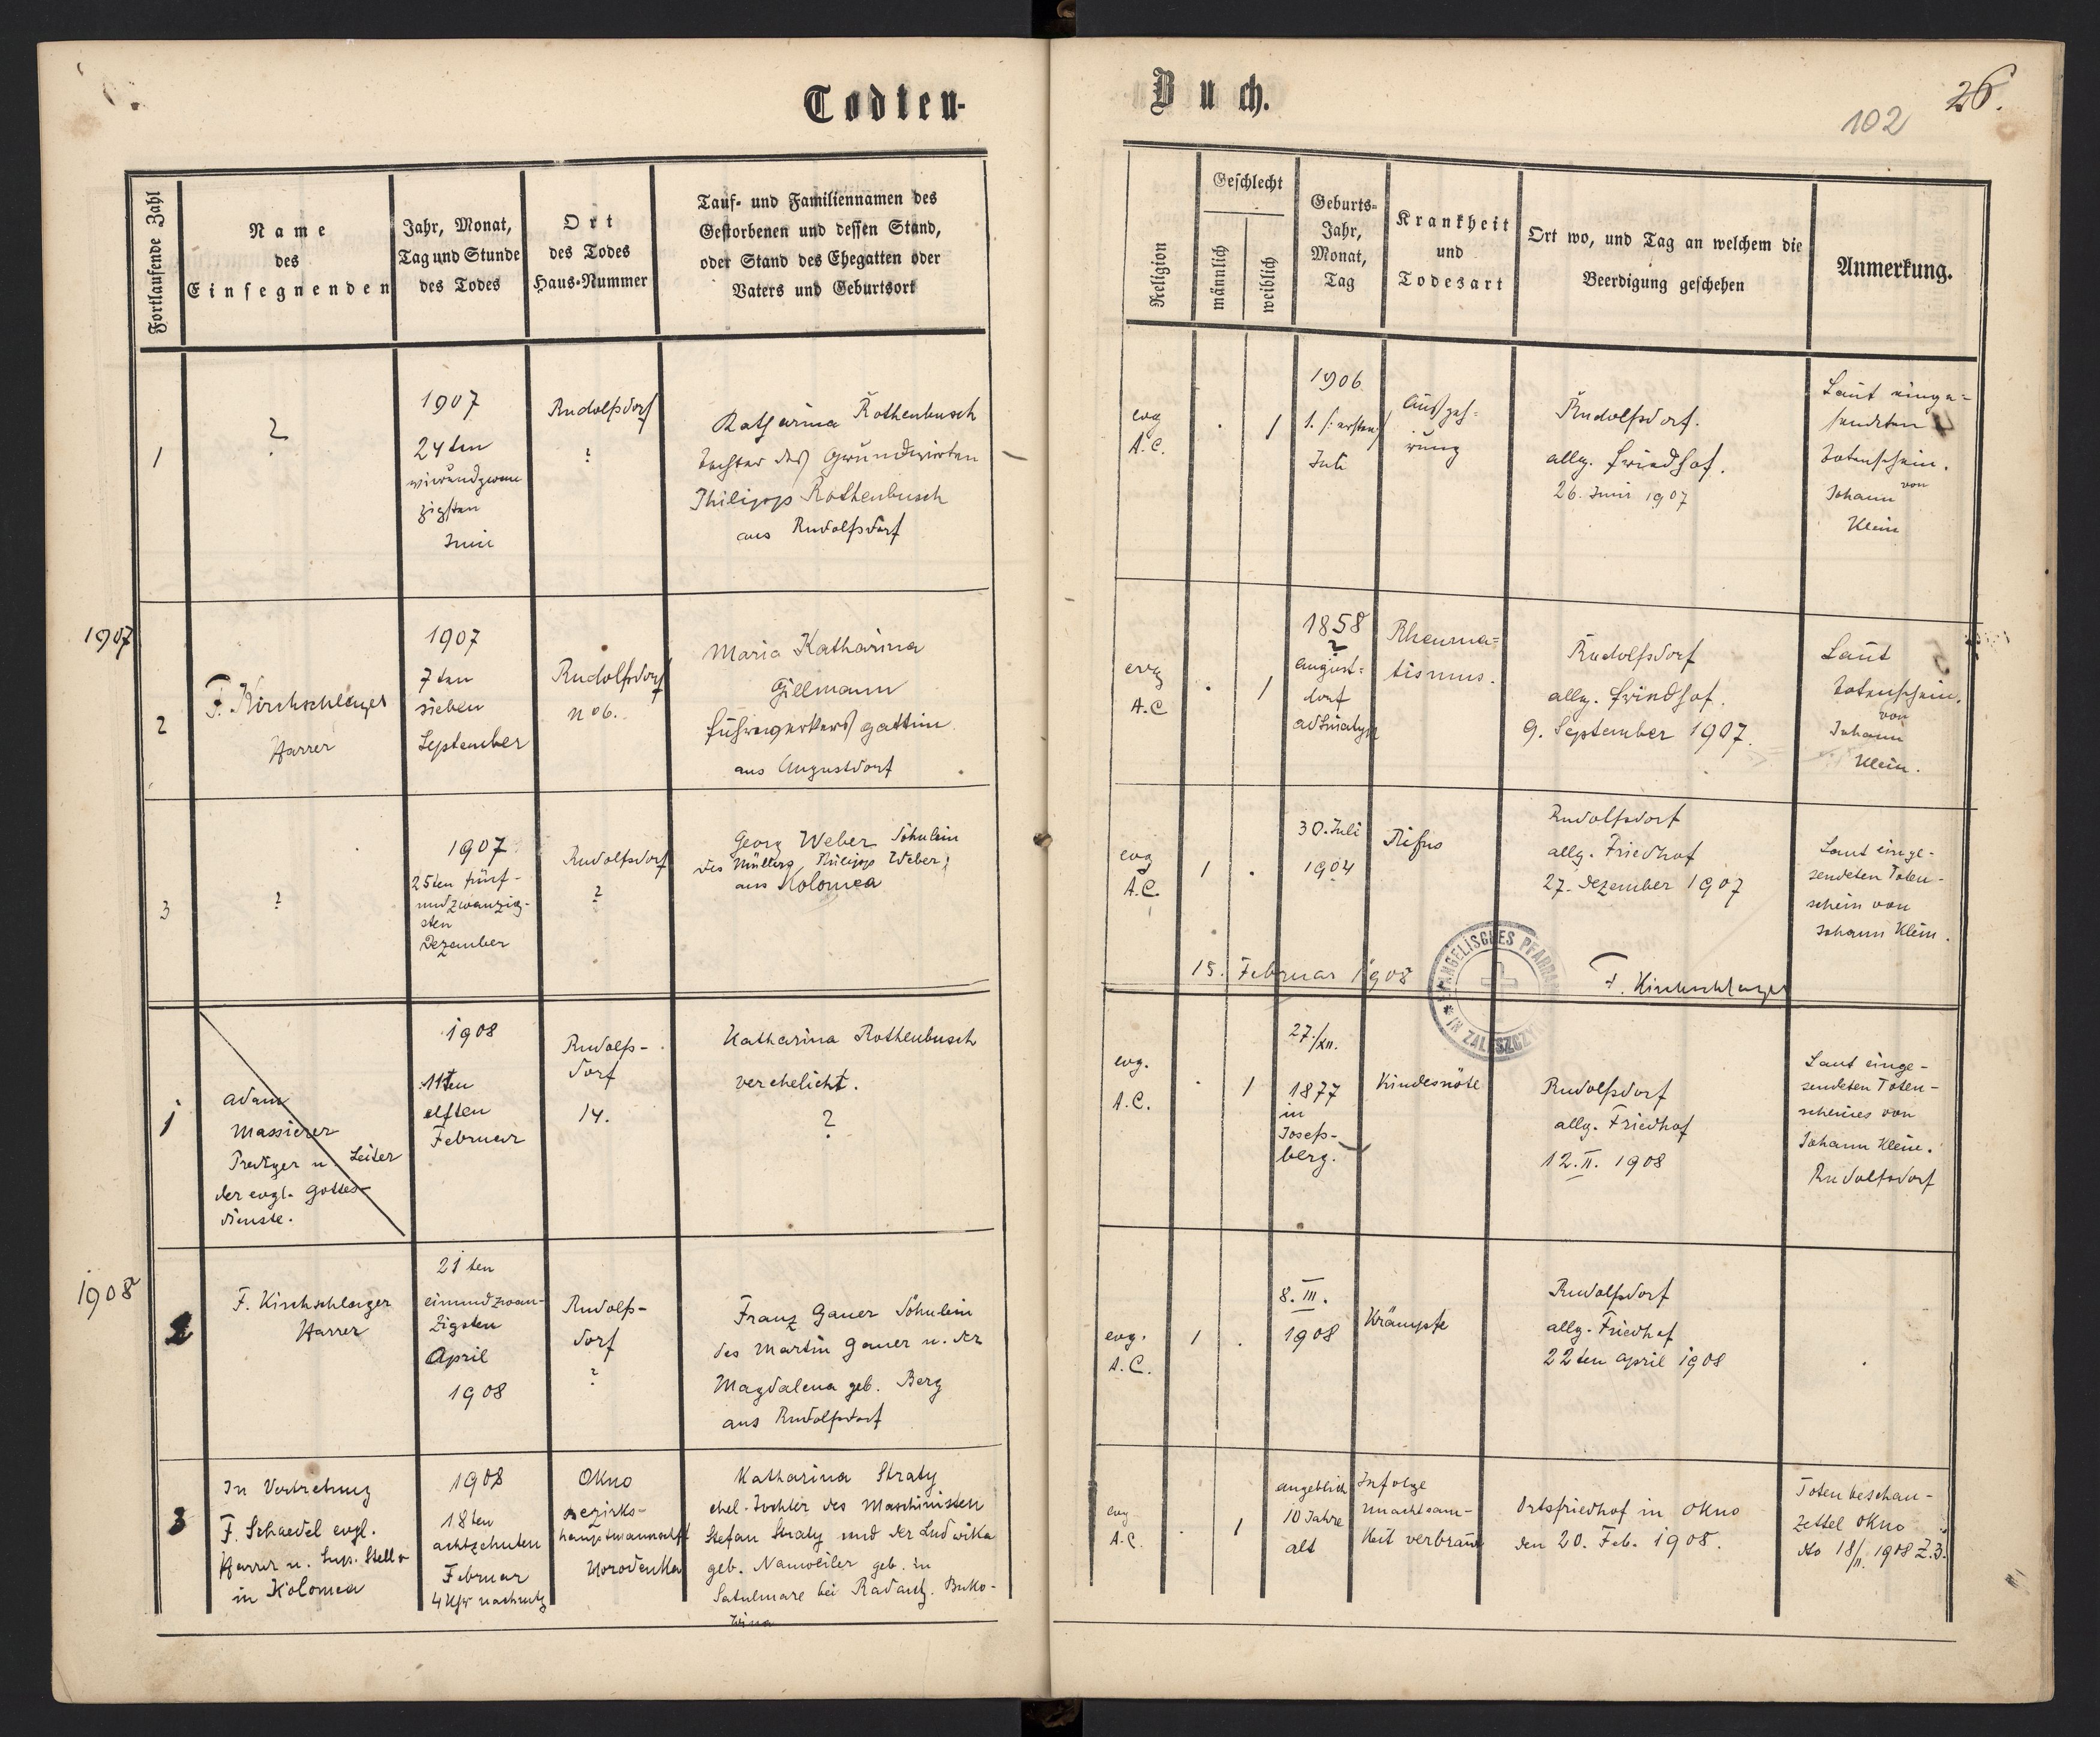 Todten-
Buch.
26.
102
Fortlaufende Zahl
Name
des
Einsegnenden
Jahr, Monat,
Tag und Stunde
des Todes
Ort
des Todes
Haus-Nummer
Tauf- und Familiennamen des
Gestorbenen und dessen Stand,
oder Stand des Ehegatten oder
Vaters und Geburtsort
Religion
Geschlecht
männlich
weiblich
Geburts-
Jahr,
Monat,
Tag
Krankheit
und
Todesart
Ort wo, und Tag an welchem die
Beerdigung geschehen
Anmerkung.
1
?
1907
24ten
vierundzwan
zigsten
Juni
Rudolfsdorf
?
Katharina Rothenbusch
Tochter des Grundwirten
Philipp Rothenbusch
aus Rudolfsdorf
evg
A.C.
.
1
1906.
1. /: ersten :/
Juli
Auszeh-
rung
Rudolfsdorf.
allg. Friedhof.
26. Juni 1907
Laut einge-
sendeten
Totenschein.
von
Johann
Klein
1907
2
F. Kirschschlager
Pfarrer
1907
7ten
sieben
September
Rudolfsdorf
No 6.
Maria Katharina
Gillmann
Fuhrwerkers gattin.
aus Augustdorf
evg
A.C
.
1
1858
?
August-
dorf
ad Sniatyn
Rheuma-
tismus.
Rudolfsdorf
allg. Friedhof.
9. September 1907.
Laut
Totenschein.
von
Johann
Klein.
3
?
1907
25ten fünf-
undzwanzig-
sten
Dezember
Rudolfsdorf
?
Georg Weber Söhnlein
des Müllers Philipp Weber;
aus Kolomea
evg
A.C.
1
.
30. Juli
1904
Rifus
Rudolfsdorf
allg. Friedhof
27. Dezember 1907
Laut einge-
sendeten Toten-
schein von
Johann Klein.
15. Februar 1908
EVANGELISCHES PFARRAMT
* IN ZALESZCZYKI
F. Kirschschlager
1
Adam
Massierer
Prediger u. Leiter
der evgl. Gottes-
dienste.
1908
11ten
elften
Februar
Rudolfs-
dorf
14.
Katharina Rothenbusch
verehelicht.
?
evg.
A.C.
.
1
27./XII.
1877
in
Josefs-
berg.
Kindesnöte
Rudolfsdorf
allg. Friedhof
12. II. 1908
Laut einge-
sendeten Toten-
scheines von
Johann Klein.
Rudolfsdorf
1908
2
F. Kirschschlager
Pfarrer
21ten
einundzwan-
zigsten
April
1908
Rudolfs-
dorf
?
Franz Gauer Söhnlein
des Martin Gauer u. der
Magdalena geb. Berg
aus Rudolfsdorf
evg.
A.C.
1
.
8. III.
1908
Krämpfe
Rudolfsdorf
allg. Friedhof
22ten April 1908
.
3
In Vertretung
F. Schaedel evgl.
Pfarrer u. Sup. Stellv
in Kolomea
1908
18ten
achtzehnten
Februar
4 Uhr nachmttg
Okno
Bezirks-
hauptmannschft
Horodenka
Katharina Straty
ehel. Tochter des Maschinisten
Stefan Straty und der Ludwika
geb. Namveiler geb. in
Satulmare bei Radautz. Buko-
wina
evg
A.C.
.
1
angeblich
10 Jahre
alt
Infolge
Unachtsam-
keit verbrannt
Ortsfriedhof in Okno
den 20. Feb. 1908.
Totenbeschau-
zettel Okno
dto 18/II. 1908 Z. 3.